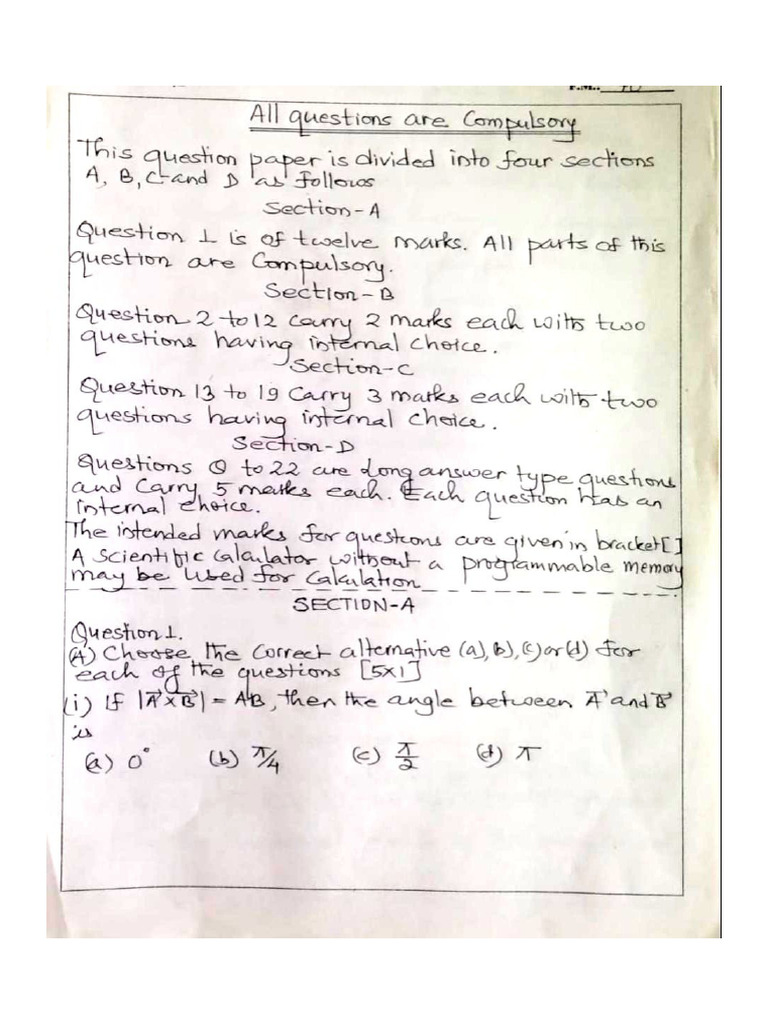 F.M.: 70
All questions are Compulsory
This question paper is divided into four sections
A, B, C and D as follows
Section-A
Question 1 is of twelve marks. All parts of this
question are Compulsory.
Section-B
Question 2 to 12 carry 2 marks each with two
questions having internal choice.
Section-C
Question 13 to 19 Carry 3 marks each with two
questions having internal choice.
Section-D
Questions to 22 are Long answer type questions
and Carry 5 marks each. Each question has an
internal choice.
The intended marks for questions are given in bracket[]
A Scientific Calculator without a programmable memory
may be used for Calculation
SECTION-A
Question 1.
(A) Choose the correct alternative (a), (b), (c) or (d) for
each of the questions [5x1]
(i) If |A⃗×B⃗| = AB, then the angle between A⃗ and B⃗
is
(a) 0° (b) π/4 (c) π/2 (d) π